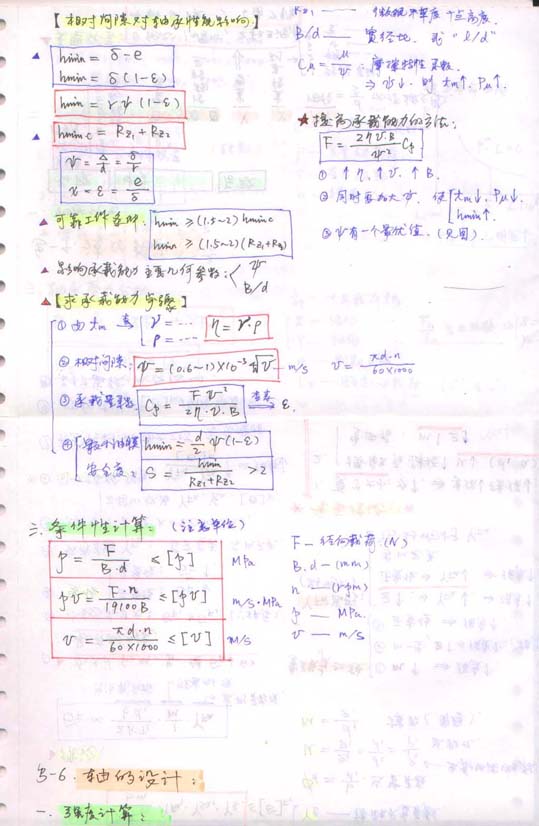 【相对间隙对轴承性能影响】
hmin = δ - e
hmin = δ(1-ε)
hmin = rψ(1-ε)
hmin c = Rz1 + Rz2
ψ = Δ/d = δ/r
x = ε = e/δ
▲ 可靠工作条件: hmin ≥ (1.5~2) hmin c
hmin ≥ (1.5~2)(Rz1+Rz2)
▲ 影响承载能力主要几何参数: < ψ
B/d
▲【求承载能力步骤】
① 由 tm 查 ν = ...
ρ = ...
η = ν·ρ
② 相对间隙: ψ = (0.6~1)×10⁻³ ∜v — m/s v = πd·n/60×1000
③ 承载量系数 Cp = Fψ²/2η·v·B 查表 ⇒ ε.
④ 最小油膜 hmin = d/2 ψ(1-ε)
安全度: S = hmin/Rz1+Rz2 > 2
Rz1 —— 微观不平度十点高度.
B/d —— 宽径比. 或 "l/d"
Cμ = μ/ψ : 摩擦特性系数.
⇒ ψ↓. 则 tm↑. Pμ↑.
★ 提高承载能力的方法:
F = 2ηv·B/ψ² Cp
① ↑η. ↑v. ↑B.
② 同时要加大ψ. 使 tm↓. Pμ↓.
hmin↑.
③ ψ有一个最优值. (见图).
三. 条件性计算: (注意单位)
p = F/B·d ≤ [p] MPa
pv = F·n/19100B ≤ [pv] m/s·MPa
v = πd·n/60×1000 ≤ [v] m/s
F — 径向载荷 (N)
B.d — (mm)
n — (rpm)
p — MPa.
v — m/s
3-6. 轴的设计:
一. 强度计算: